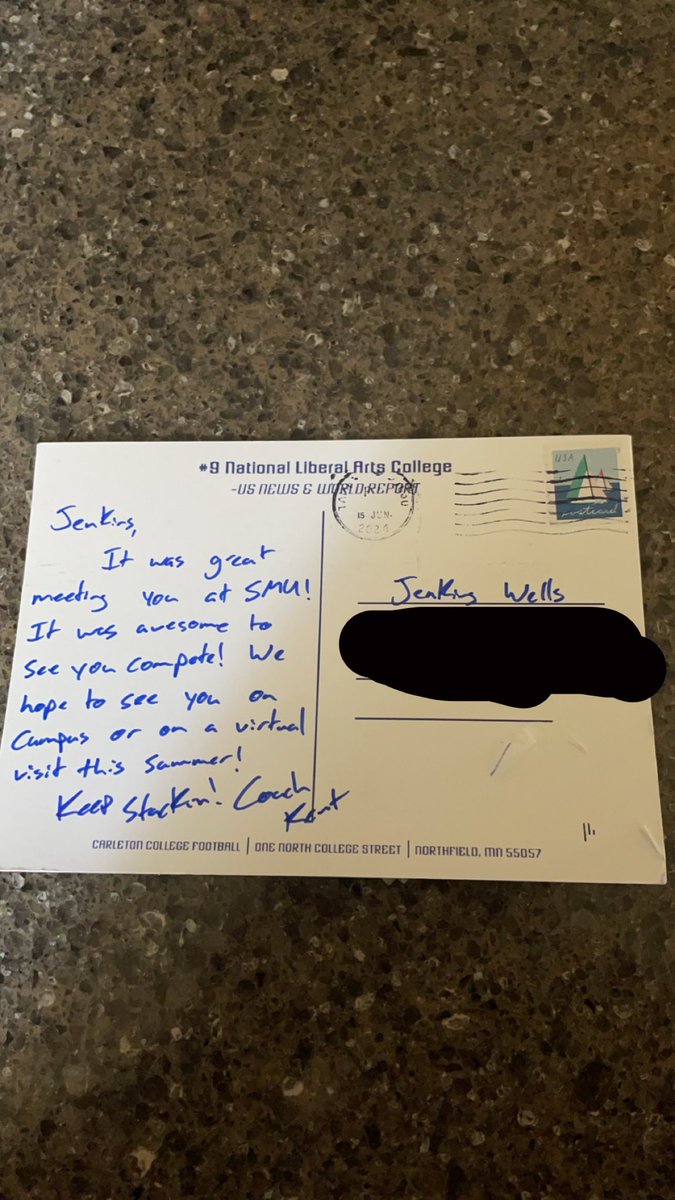 #9 National Liberal Arts College
-US NEWS & WORLD REPORT
USA
postcard
15 JUN
Jenkins,
It was great
meeting you at SMU!
It was awesome to
see you compete! We
hope to see you on
Campus or on a virtual
visit this summer!
Keep Stackin! Coach
Kent
Jenkins Wells
CARLETON COLLEGE FOOTBALL | ONE NORTH COLLEGE STREET | NORTHFIELD, MN 55057